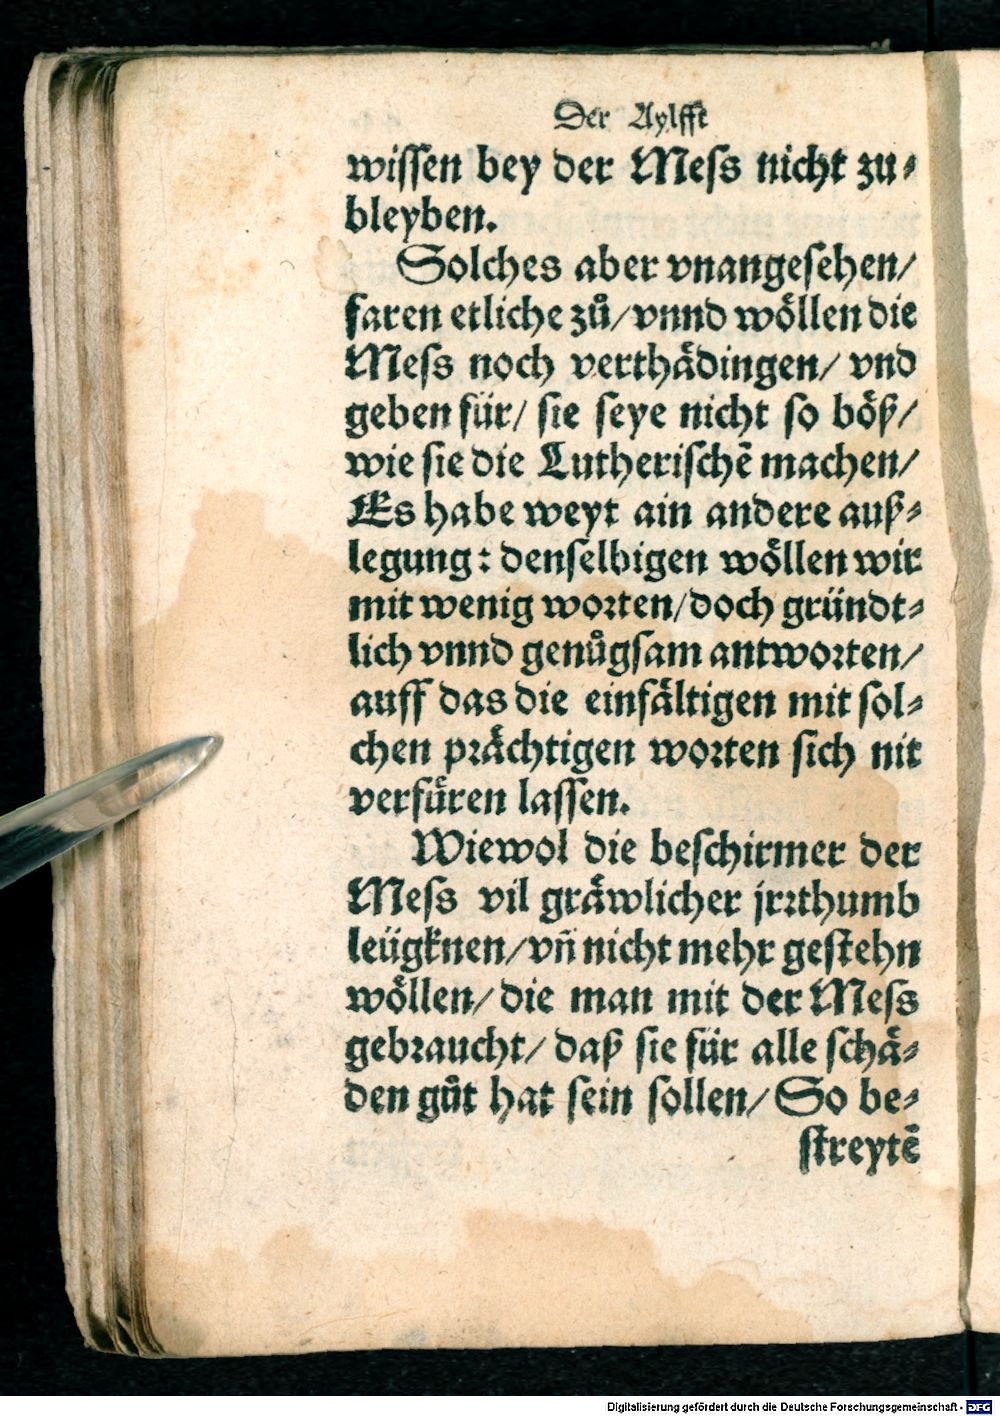 Der Aylfft
wiſſen bey der Meſs nicht zu⸗
bleyben.
Solches aber vnangeſehen/
faren etliche zuͦ/vnnd woͤllen die
Meſs noch verthaͤdingen/ vnd
geben für/ ſie ſeye nicht ſo boͤß/
wie ſie die Lutheriſchē machen/
Es habe weyt ain andere auß⸗
legung: denſelbigen woͤllen wir
mit wenig woꝛten/doch gründt⸗
lich vnnd genuͦgſam antwoꝛten/
auff das die einfaͤltigen mit ſol⸗
chen pꝛaͤchtigen woꝛten ſich nit
verfuͤren laſſen.
Wiewol die beſchirmer der
Meſs vil graͤwlicher jrꝛthumb
leügknen/vñ nicht mehr geſtehn
woͤllen/ die man mit der Meſs
gebꝛaucht/ daß ſie für alle ſchaͤ⸗
den guͦt hat ſein ſollen/ So be⸗
ſtreytē
Digitalisierung gefördert durch die Deutsche Forschungsgemeinschaft - DFG